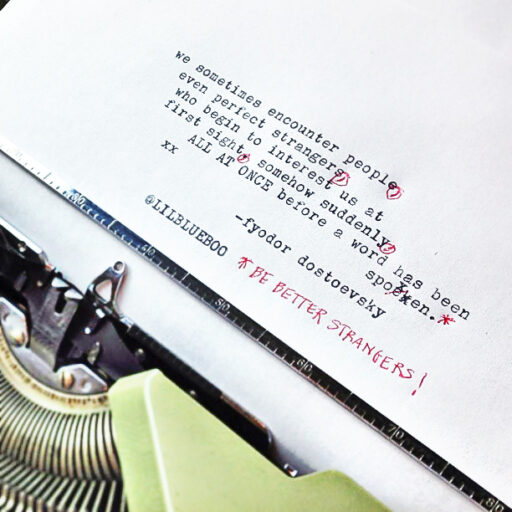 we sometimes encounter people,
even perfect strangers,
who begin to interest us at
first sight, somehow suddenly,
ALL AT ONCE before a word has been
xx spoken.*
-fyodor dostoevsky
@LILBLUEBOO
*BE BETTER STRANGERS!
40 50 60 70 80